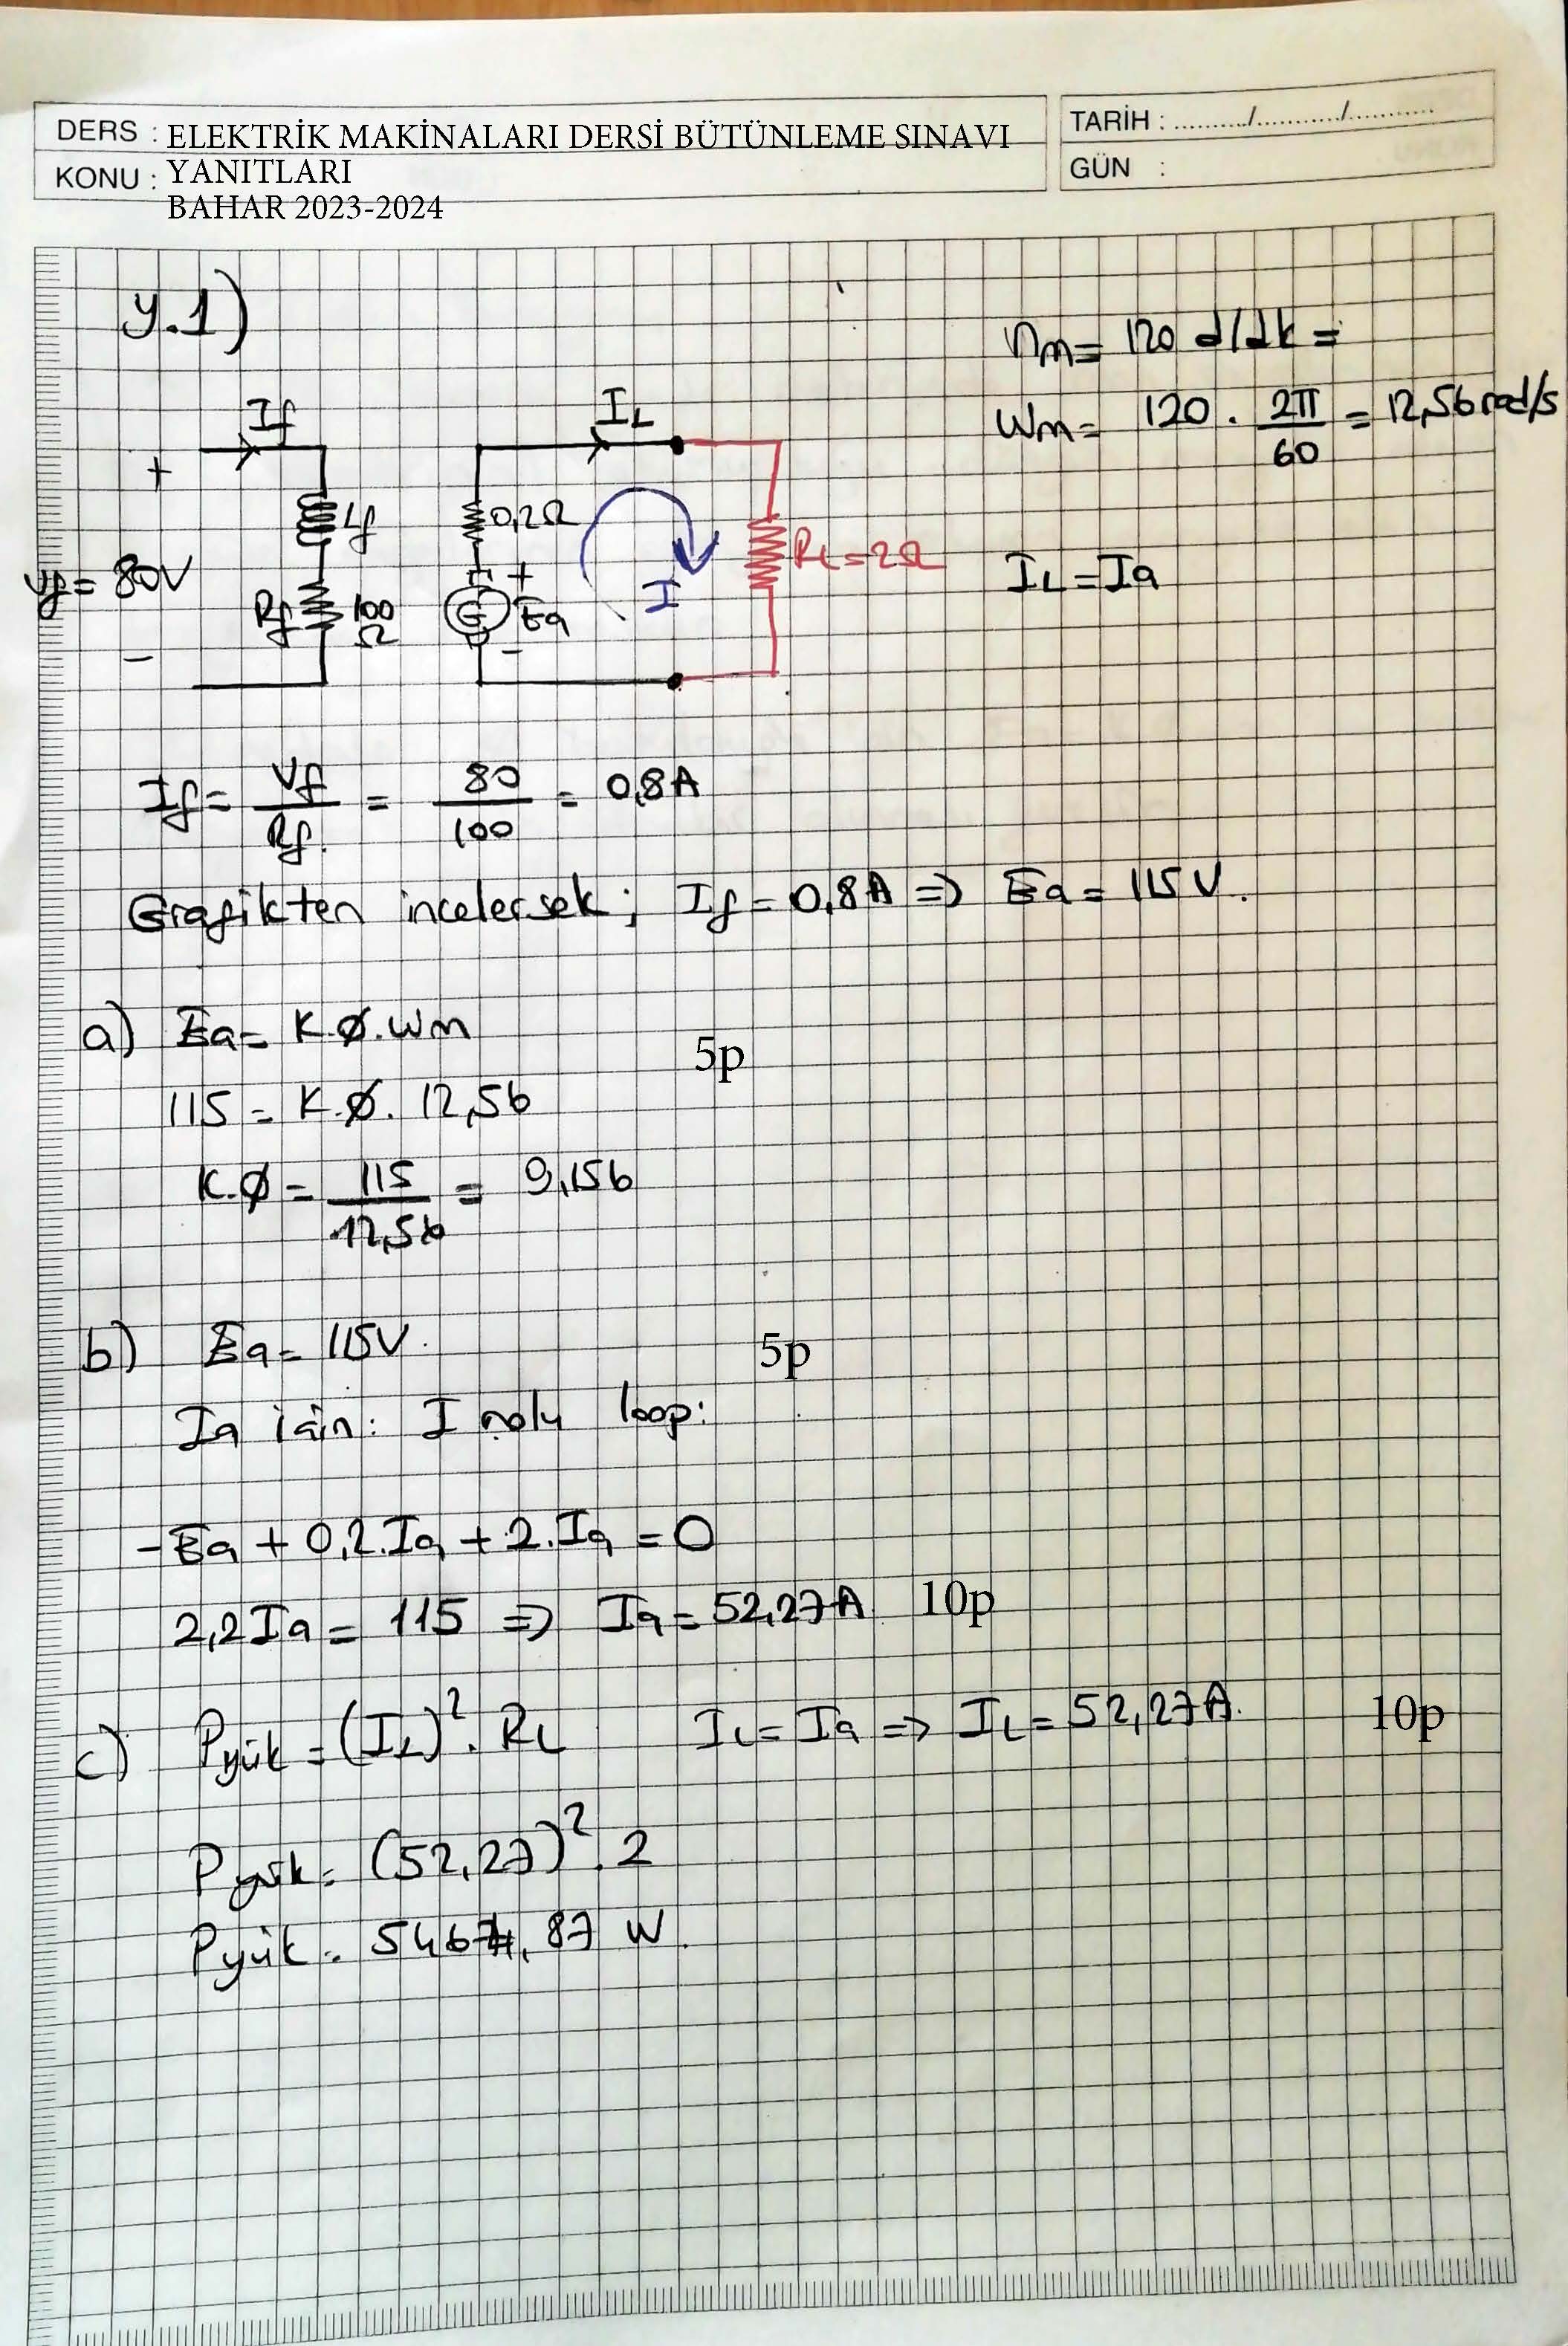 DERS : ELEKTRİK MAKİNALARI DERSİ BÜTÜNLEME SINAVI
KONU : YANITLARI
BAHAR 2023-2024
TARİH : ........../.........../............
GÜN :
Y.1)
nm = 120 d/dk =
Wm = 120 . 2π/60 = 12,56 rad/s
If
IL
+
Lf
0,2Ω
Vf = 80V
Rf
100 Ω
+
G
Ea
-
I
RL = 2Ω
IL = Ia
-
If = Vf/Rf = 80/100 = 0,8A
Grafikten incelersek; If = 0,8A => Ea = 115V.
a) Ea = K.Ø.Wm
5p
115 = K.Ø. 12,56
K.Ø = 115/12,56 = 9,156
b) Ea = 115V.
5p
Ia için: I nolu loop:
-Ea + 0,2.Ia + 2.Ia = 0
2,2Ia = 115 => Ia = 52,27A 10p
c) Pyük = (IL)². RL IL = Ia => IL = 52,27A. 10p
Pyük = (52,27)². 2
Pyük = 5464,87 W.